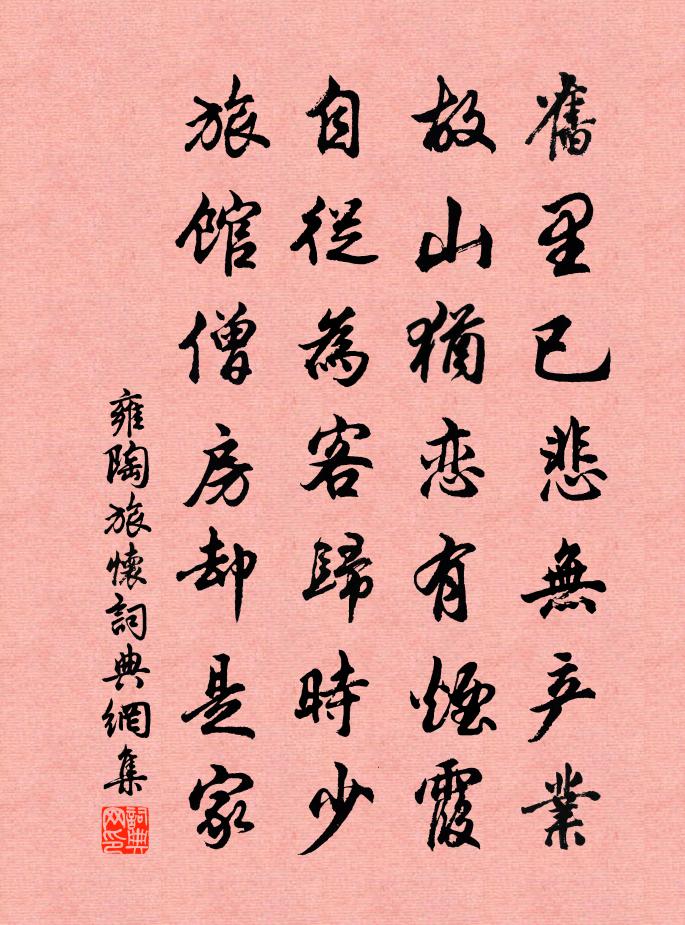 舊里已悲無产業
故山猶恋有煙霞
自從為客歸時少
旅館僧房却是家
雍陶旅懷詞典網集
詞典网印